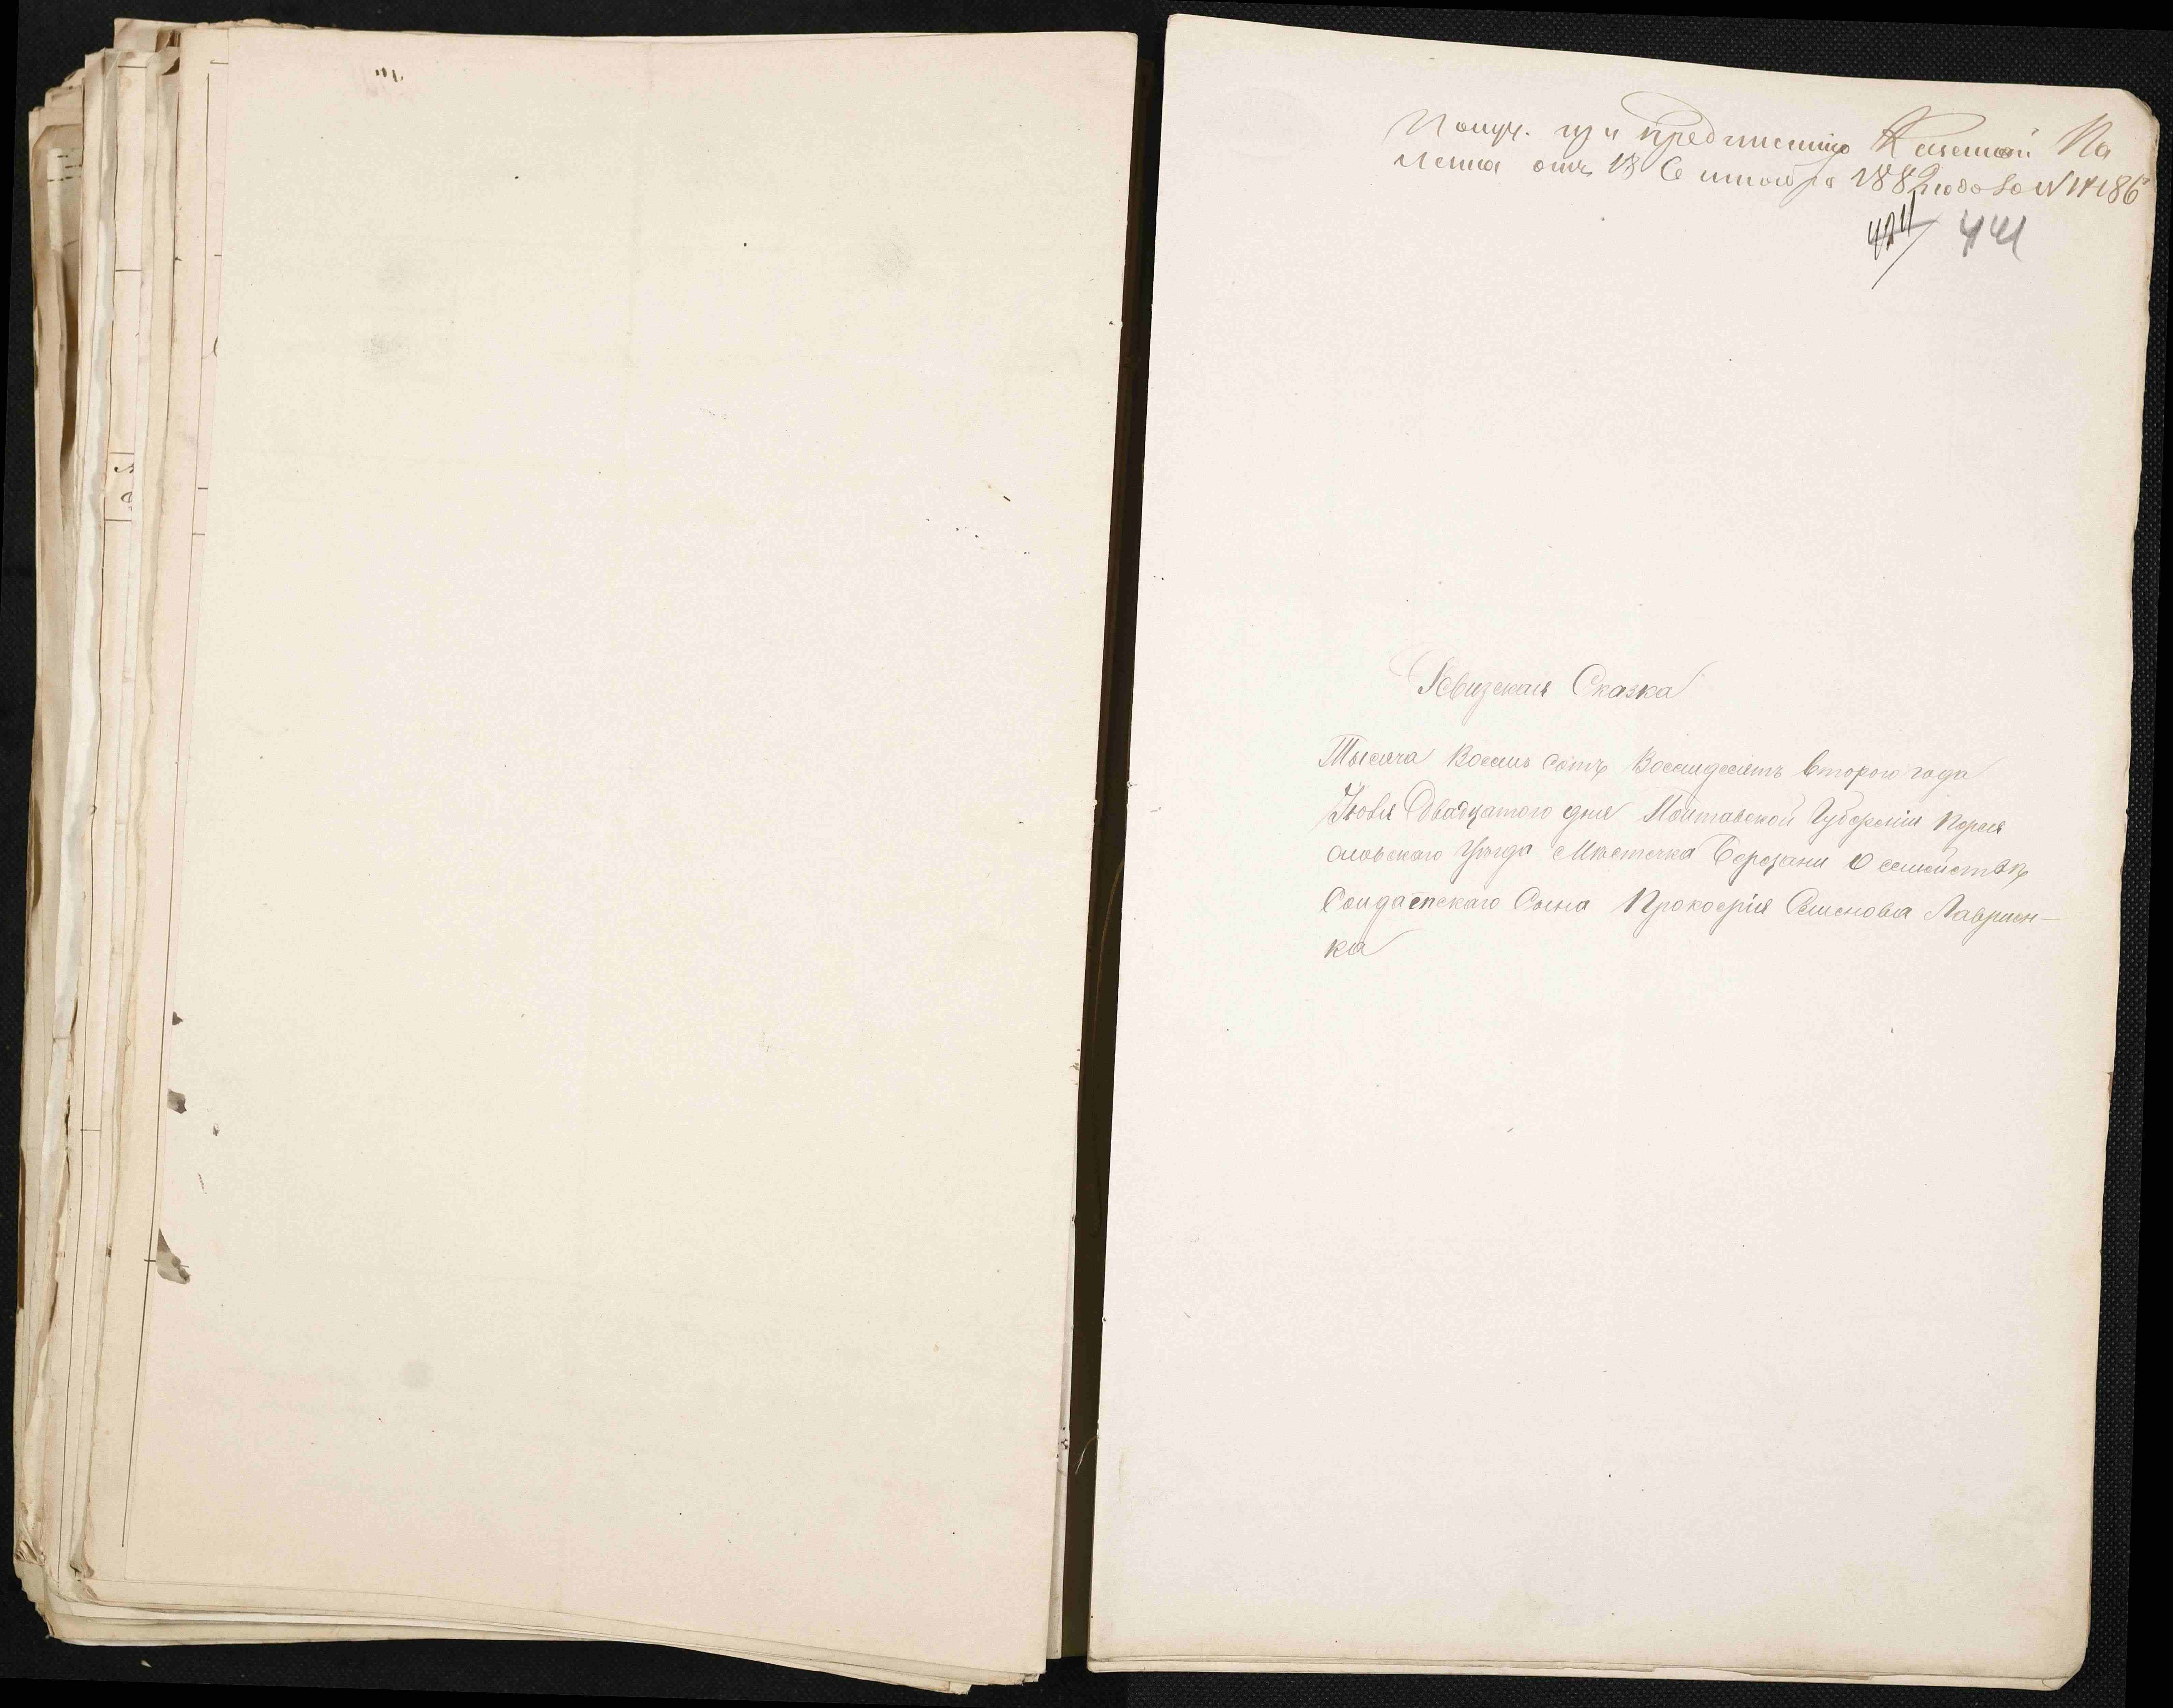 Получ. при предписанiи Казенной Па
латы отъ 13 Сентября 1882 года за № 14186
424 441
Ревизская Сказка
Тысяча Восемь сотъ Восемдесятъ второго года
Двадцатого дня Полтавской Губернiи Перея
славскаго Уѣзда Мѣстечка Березани О семействѣ
Солдатскаго Сына Прокофiя Семенова Лавринен-
ка